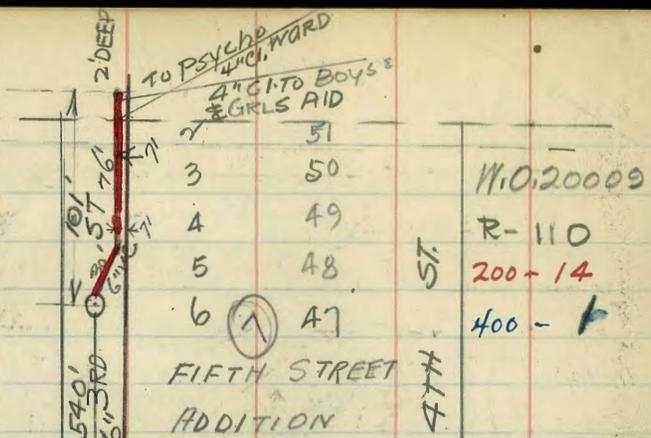 2' DEEP
TO PSYCHO WARD
4" C.I.
4" C.I. TO BOYS &
& GRLS AID
2 51
3 50
4 49
5 48
6 47
7
FIFTH STREET
ADDITION
101'
ST
76'
7'
7'
30'
6" V.C.
540'
6" 3RD
4TH ST.
W.O. 20009
R-110
200-14
400-